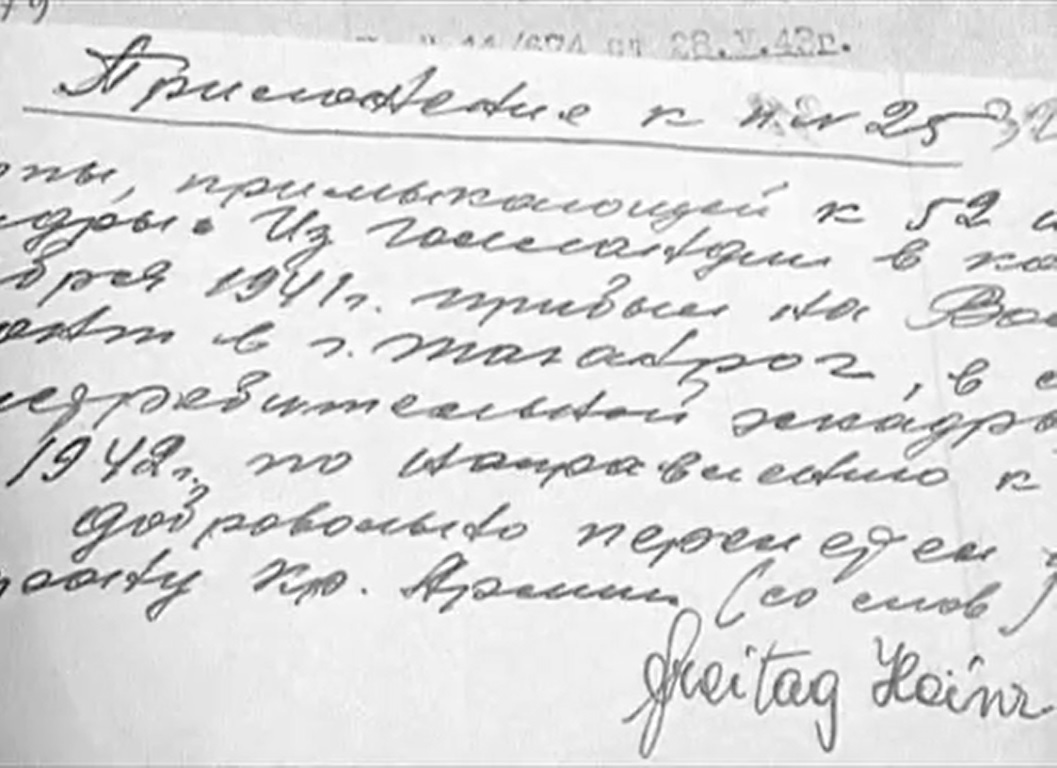 79
11/674 от 28.V.43г.
Приложение к п. 25
ппы, примыкающей к 52 и
адры. Из Голландии в ко
ября 1941г. прибыл на Во
ронт в г. Таганрог, в с
истребительной эскадры
1942г. по направлению к
добровольно перешел
фронту Кр. Армии (со слов)
Freitag Heinz